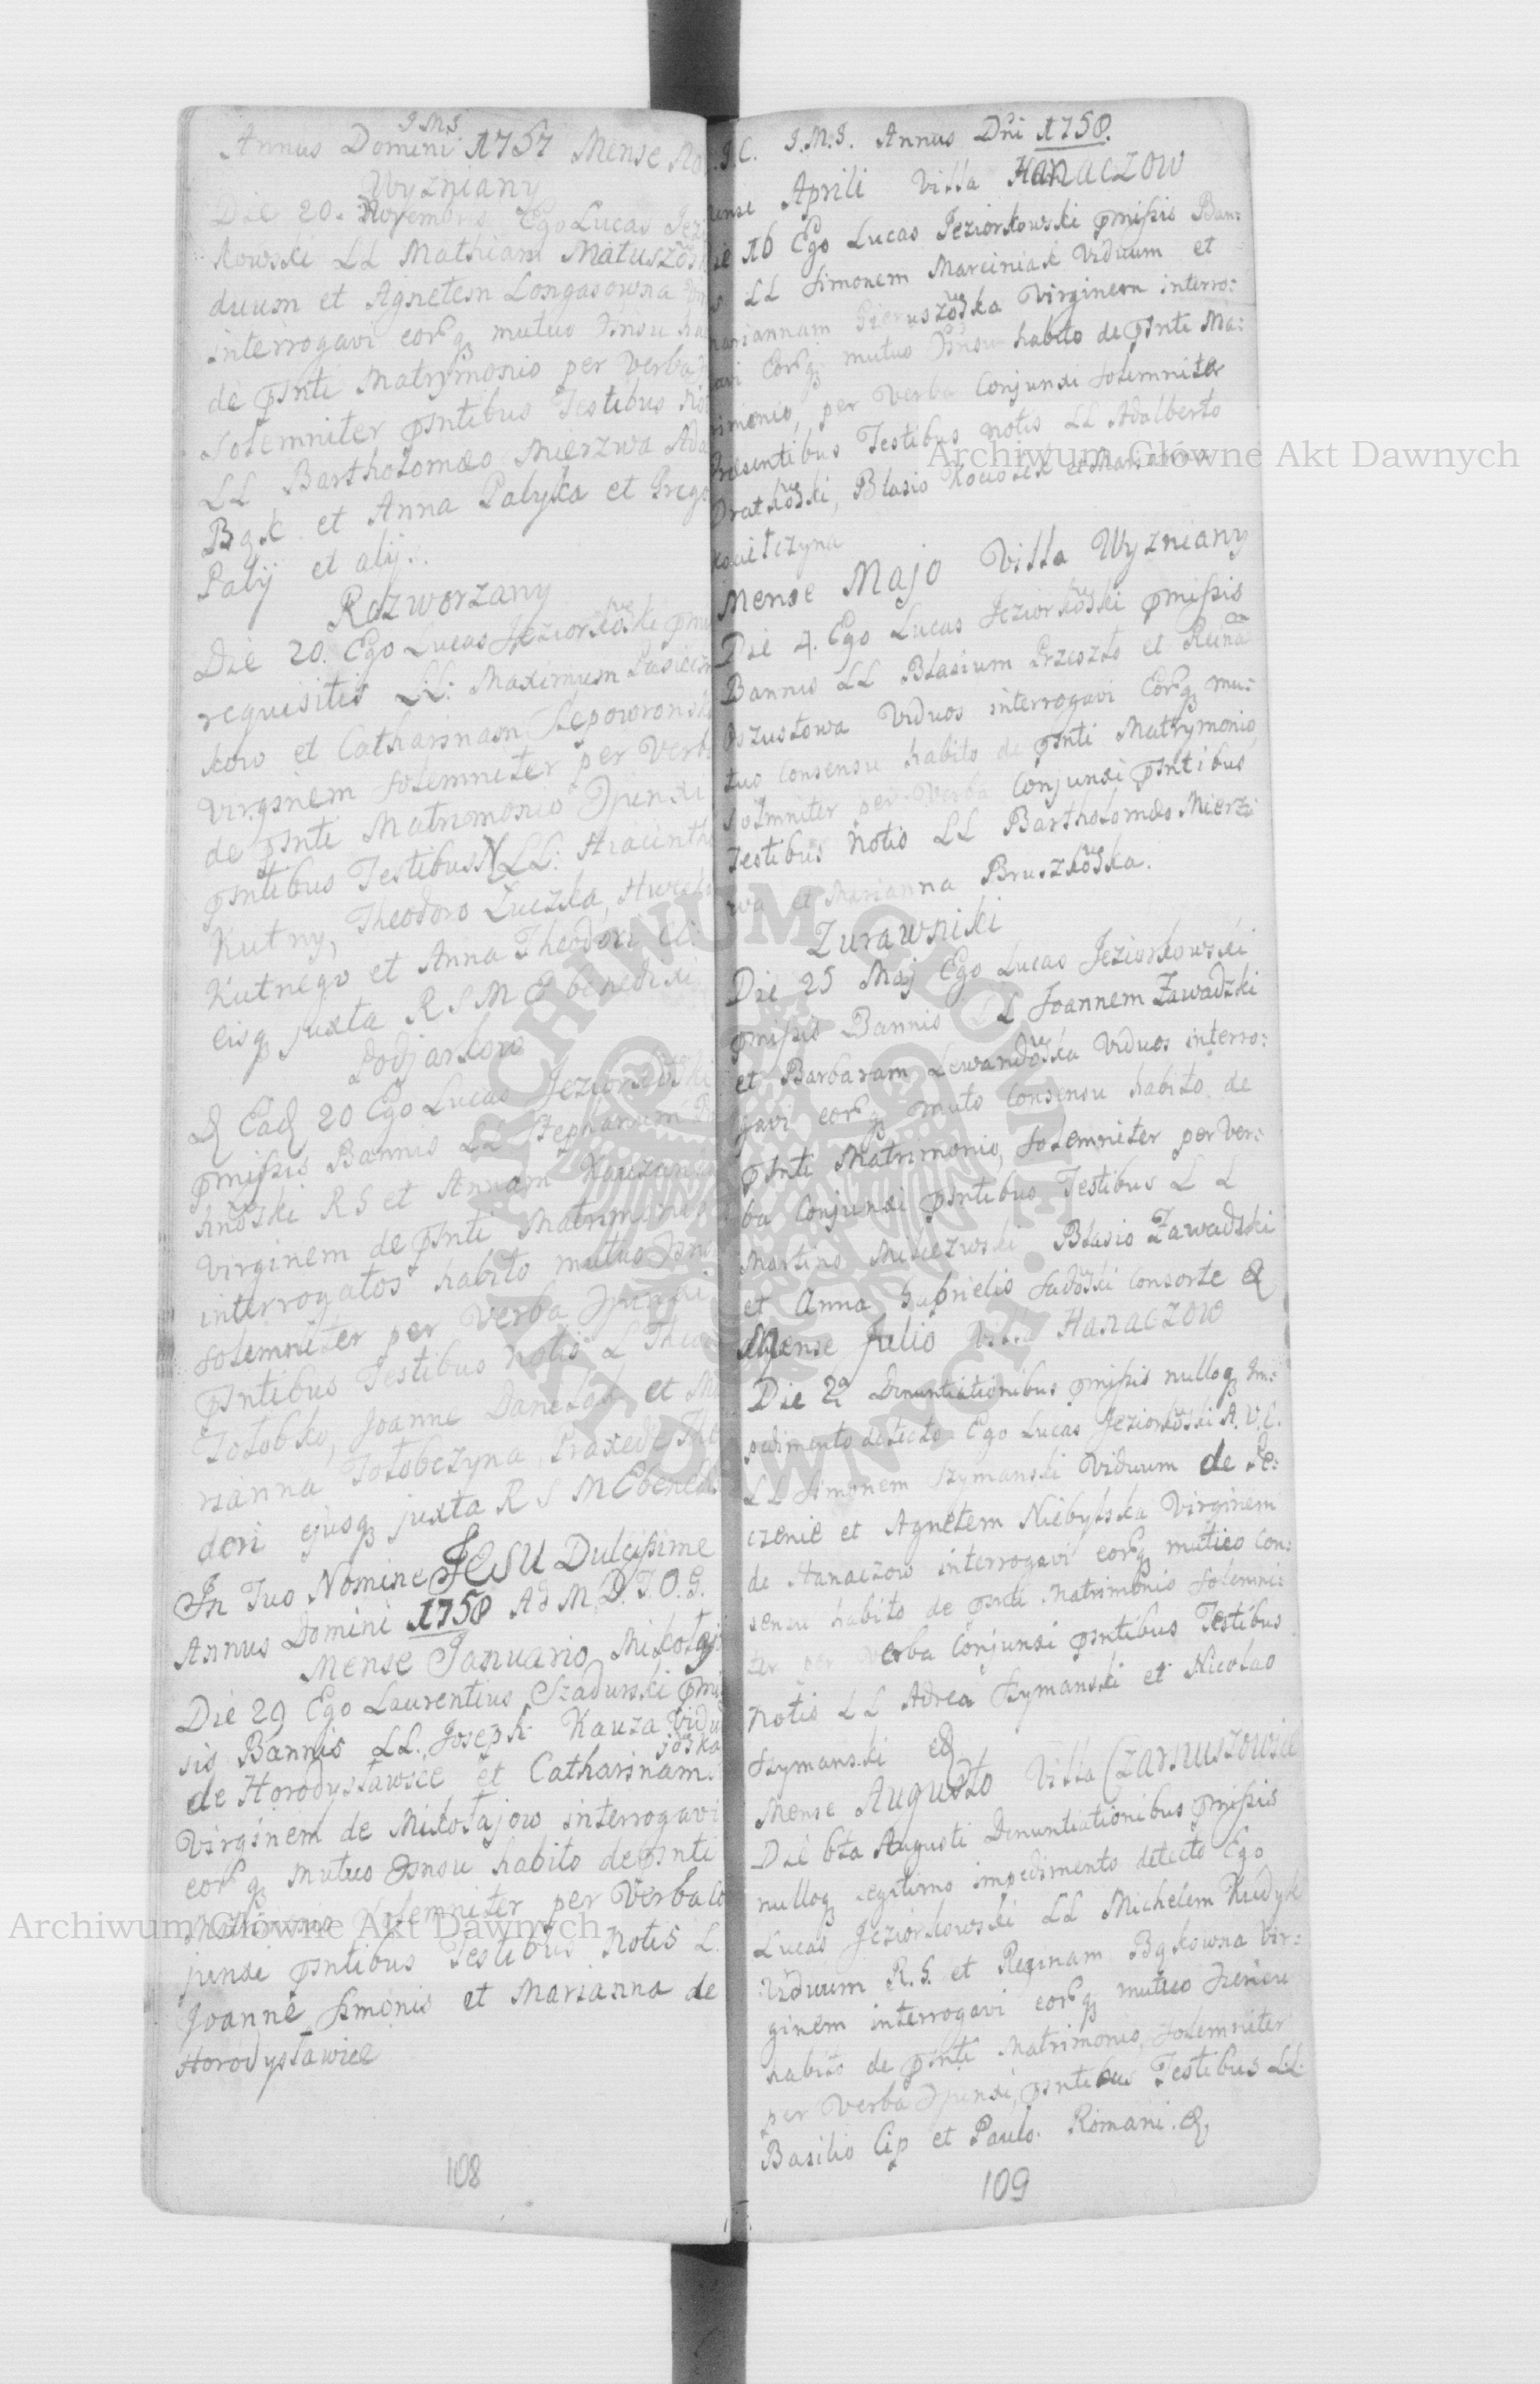 J.M.J.
Annus Domini 1757 Mense No
Wyzniany
Die 20. Novembris Ego Lucas Jezi
kowski LL Mathiam Matuszoski
duum et Agnetem Longasowna Vir
interrogavi eorqꝫ mutuo Ɔnsu ha
de pnti Matrymonio per Verba
Solemniter pntibus Testibus No
LL Bartholomæo Mierzwa Ada
Bąk et Anna Palyka et Grego
Palij et alij.
Rozworzany
Die 20. Ego Lucas Jeziorkoski pmi
requisitis LL: Maximum Pasiecz
kow et Catharinam Slepowronsk
Virginem Solemniter per Verb
de pnti Matrimonio Ɔjunxi
pntibus Testibus N LL: Hiacintho
Kutny, Theodoro Luczka,
Kutnego et Anna Theodori
eisqꝫ juxta R S M E benedixi
Podjarkow
D Ead 20 Ego Lucas Jeziorkoski
pmissis Bannis LL Stephanum
R S et Annam
Virginem de pnti Matrimonio
interrogatos habito mutuo Ɔns
Solemniter per Verba Ɔjunxi
pntibus Testibus Notis L Theo
Tolobko, Joanne et Ma
rianna Tolobczyna Praxede The
dori ejusqꝫ juxta R S M E bened
In Tuo Nomine JESU Dulcissime
Annus Domini 1758 Ad M. D. T. O. G.
Mense Januario Mikołajo
Die 29 Ego Laurentius Szadurski pmis
sis Bannis LL. Joseph Kauza Vidu
de Horodysławice et Catharinam joska
Virginem de Mikołajow interrogavi
eorqꝫ mutuo Ɔnsu habito de pnti
Matrimonio Solemniter per Verba Co
junxi pntibus Testibus Notis L.
Joanne Simonis et Marianna de
Horodysławice
108
J.C. J.M.J. Annus Dni 1758.
ense Aprili Villa HANACZOW
ie 16 Ego Lucas Jeziorkowski pmissis Ban:
s LL Simonem Marciniak Viduum et
ariannam Pieruszoska Virginem interro:
avi Eorqꝫ mutuo Ɔnsu habito de pnti Ma:
rimonio, per Verba Conjunxi Solemniter
Præsentibus Testibus notis LL Adalberto
Dratkoski, Blasio Kociolek et Marianna
kowilczyna
Mense MAJO Villa Wyzniany
Die 4. Ego Lucas Jeziorkoski pmissis
Bannis LL Blasium Przeszlo et
Oszustowa Viduos interrogavi Eorqꝫ mu:
tuo Consensu habito de pnti Matrymonio,
Solmniter per Verba Conjunxi pntibus
Testibus Notis LL Bartholomæo Mierz:
wa et Marianna Bruszkoska.
Zurawniki
Die 25 Maj Ego Lucas Jeziorkowski
pmissis Bannis LL Joannem Zawadzki
et Barbaram Lewandoska Viduos interro:
gavi eorqꝫ muto Consensu habito de
pnti Matrimonio, Solemniter per Ver:
ba Conjunxi pntibus Testibus L L
Martino Blasio Zawadzki
et Anna Gabrielis Sadoski Consorte &
Mense Julio Villa HANACZOW
Die 2a Denuntiationibus pmissis nulloqꝫ Im:
pedimento detecto Ego Lucas Jeziorkoski A. V. C.
LL Simonem Szymanski Viduum de Pe:
czenie et Agnetem Niebylska Virginem
de Hanaczow interrogavi eorqꝫ mutuo Con:
sensu habito de pnti Matrimonio Solemni:
ter per Verba Conjunxi pntibus Testibus
Notis LL Adrea Szymanski et Nicolao
Szymanski &
Mense Augusto Villa CZARNUSZOWICE
Die 6ta Augusti Denuntiationibus pmissis
nulloqꝫ legitimo impedimento detecto Ego
Lucas Jeziorkowski LL Michelem Kudyk
Viduum R. G. et Reginam Bąkowna Vir:
ginem interrogavi eorqꝫ mutuo Ɔsensu
habito de pnti Matrimonio, Solemniter
per Verba Ɔjunxi, pntibus Testibus LL.
Basilio Cip et Paulo Romani &
109
Archiwum Główne Akt Dawnych
Archiwum Główne Akt Dawnych
ARCHIWUM GŁÓWNE AKT DAWNYCH